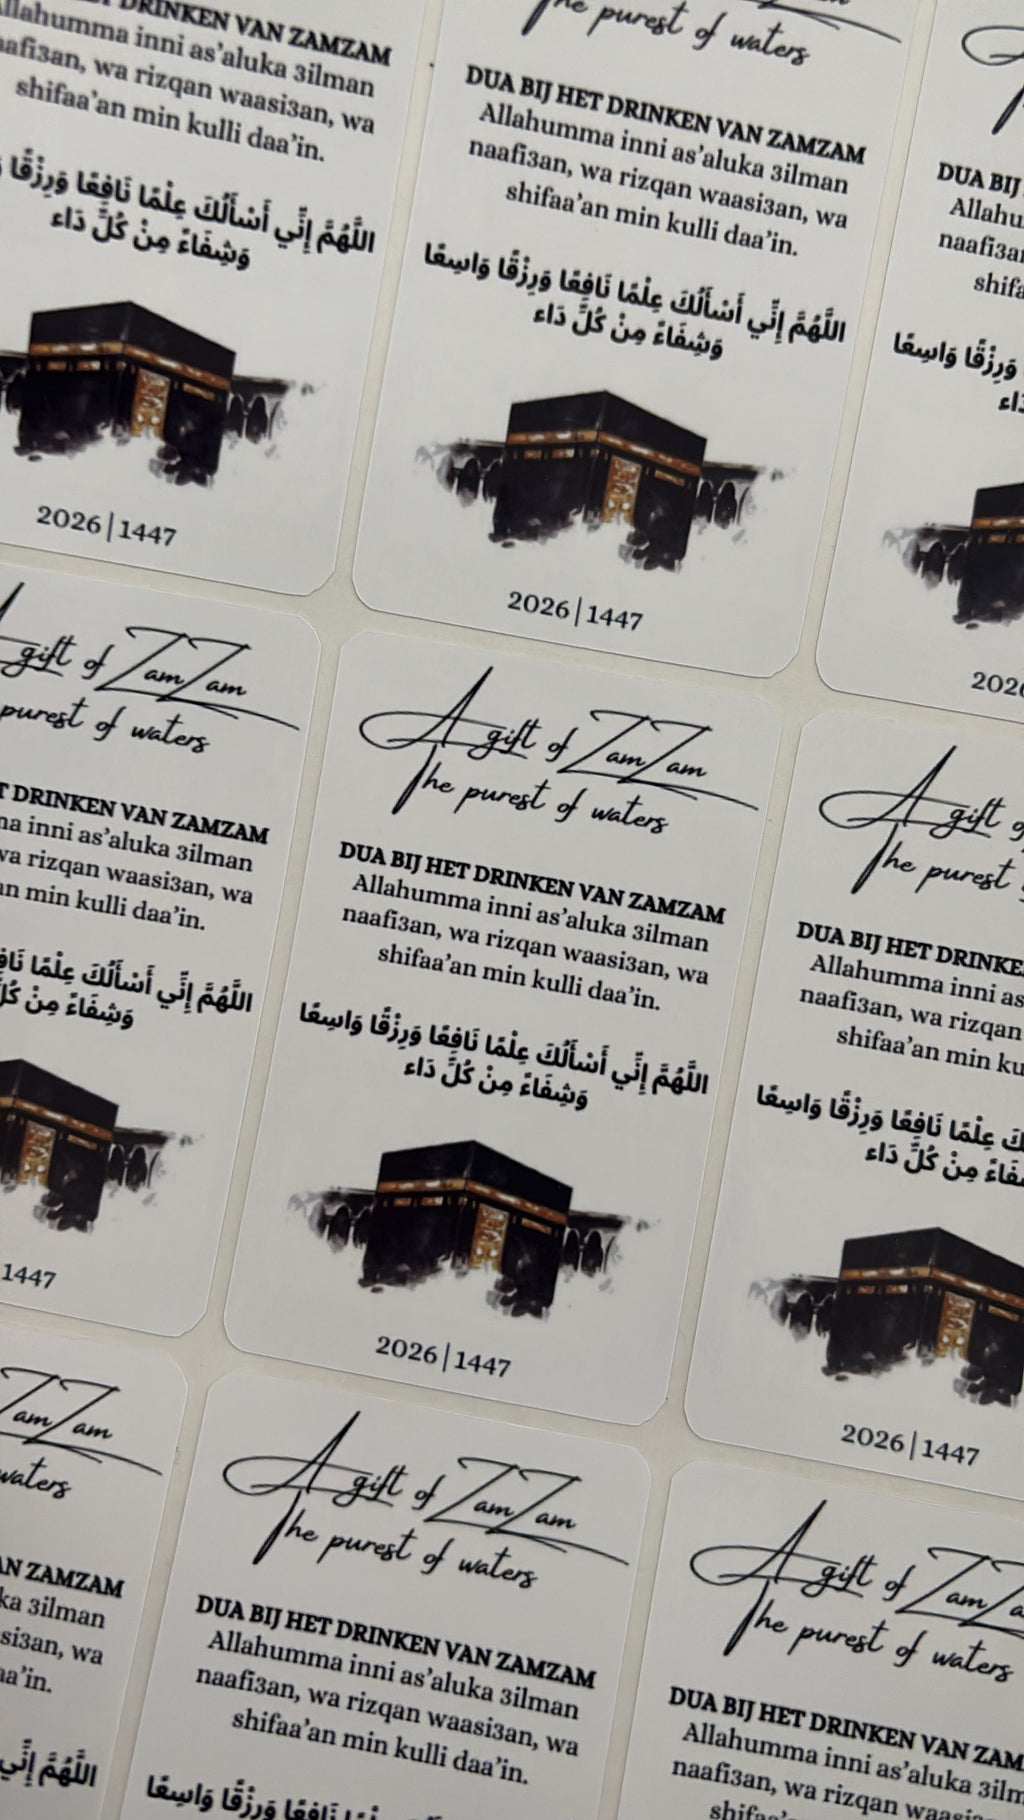 DRINKEN VAN ZAMZAM
Allahumma inni as'aluka 3ilman
naafi3an, wa rizqan waasi3an, wa
shifaa'an min kulli daa'in.
اللَّهُمَّ إِنِّي أَسْأَلُكَ عِلْمًا نَافِعًا وَرِزْقًا
وَشِفَاءً مِنْ كُلِّ دَاء
2026|1447
The purest of waters
DUA BIJ HET DRINKEN VAN ZAMZAM
Allahumma inni as'aluka 3ilman
naafi3an, wa rizqan waasi3an, wa
shifaa'an min kulli daa'in.
اللَّهُمَّ إِنِّي أَسْأَلُكَ عِلْمًا نَافِعًا وَرِزْقًا وَاسِعًا
وَشِفَاءً مِنْ كُلِّ دَاء
2026|1447
DUA BIJ
وَرِزْقًا وَاسِعًا
gift of ZamZam
purest of waters
DRINKEN VAN ZAMZAM
inni as'aluka 3ilman
wa rizqan waasi3an, wa
min kulli daa'in.
اللَّهُمَّ إِنِّي أَسْأَلُكَ عِلْمًا
وَشِفَاءً مِنْ
1447
A gift of ZamZam
The purest of waters
DUA BIJ HET DRINKEN VAN ZAMZAM
Allahumma inni as'aluka 3ilman
naafi3an, wa rizqan waasi3an, wa
shifaa'an min kulli daa'in.
اللَّهُمَّ إِنِّي أَسْأَلُكَ عِلْمًا نَافِعًا وَرِزْقًا وَاسِعًا
وَشِفَاءً مِنْ كُلِّ دَاء
2026|1447
A gift of
The purest
DUA BIJ HET
Allahumma inni
naafi3an, wa rizqan
shifaa'an min
عِلْمًا نَافِعًا وَرِزْقًا وَاسِعًا
مِنْ كُلِّ دَاء
2026|1447
ZamZam
waters
ZAMZAM
3ilman
wa
اللَّهُمَّ إِنِّي
A gift of ZamZam
The purest of waters
DUA BIJ HET DRINKEN VAN ZAMZAM
Allahumma inni as'aluka 3ilman
naafi3an, wa rizqan waasi3an, wa
shifaa'an min kulli daa'in.
نَافِعًا وَرِزْقًا وَاسِعًا
A gift of
The purest of waters
DUA BIJ HET DRINKEN VAN
Allahumma inni as'aluka
naafi3an, wa rizqan